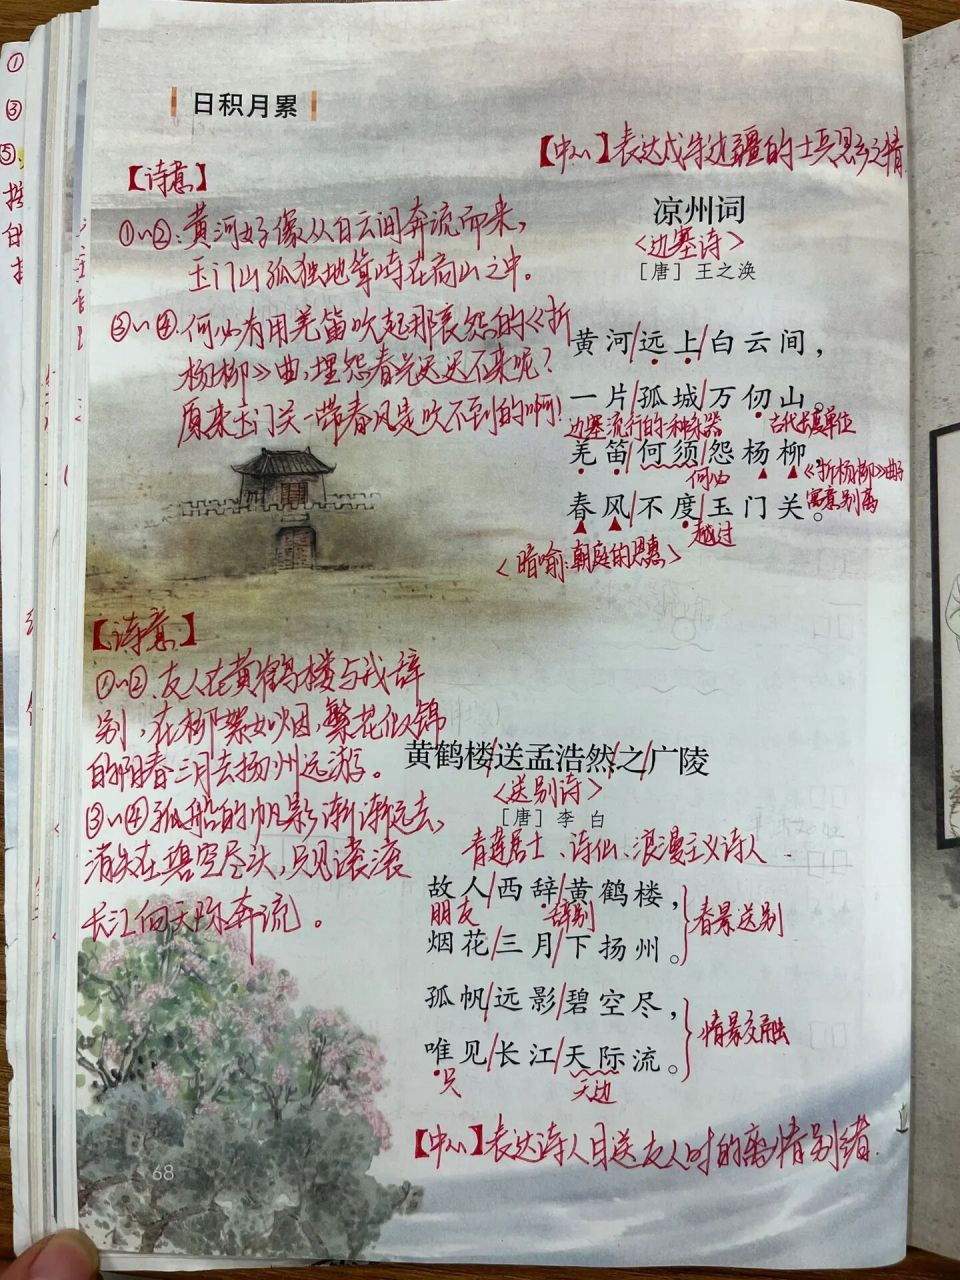 日积月累
【中心】表达戍守边疆的士兵思乡之情
凉州词
<边塞诗>
［唐］王之涣
【诗意】
①~②:黄河好像从白云间奔流而来,
玉门山孤独地耸峙在高山之中。
③~④.何必用羌笛吹起那哀怨的《折
杨柳》曲,埋怨春光迟迟不来呢?
原来玉门关一带春风是吹不到的啊!
黄河/远上/白云间，
一片/孤城/万仞山。
边塞流行的一种乐器
古代长度单位
羌笛/何须/怨杨柳，
何必
《折杨柳》曲子
寓意别离
春风/不度/玉门关。
越过
<暗喻:朝庭的恩惠>
黄鹤楼/送孟浩然/之/广陵
<送别诗>
［唐］李白
青莲居士、诗仙、浪漫主义诗人
【诗意】
①~②.友人在黄鹤楼与我辞
别,在柳絮如烟,繁花似锦
的阳春三月去扬州远游。
③~④孤船的帆影渐渐远去,
消失在碧空尽头,只见滚滚
长江向天际奔流。
故人/西辞/黄鹤楼，
朋友
辞别
烟花/三月/下扬州。
春景送别
孤帆/远影/碧空尽，
唯见/长江/天际流。
只
天边
情景交融
【中心】表达诗人目送友人时的离情别绪
68
①
③
⑤